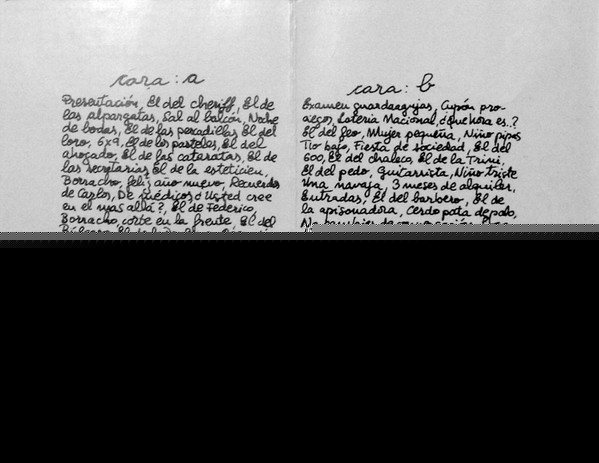 cara: a
Presentación, El del cheriff, El de
las alpargatas, Sal al balcón, Noche
de bodas, El de las pesadillas, El del
loro, 6x9, El de los pasteles, El del
ahogado, El de las cataratas, El de
las secretarias, El de la esteticien,
Borracho, feliz año nuevo, Recuerdos
de Carlos, De médicos, ¿Usted cree
en el mas allá?, El de Federico,
Borracho, corte en la frente, El del
cara: b
Examen guardaagujas, Cupón pro-
aegos, Lotería Nacional, ¿Que hora es..?
El del feo, Mujer pequeña, Niño pipas
Tio bajo, Fiesta de sociedad, El del
600, El del chaleco, El de la Trini,
El del pedo, guitarrista, Niño triste
Una navaja, 3 meses de alquiler,
Entradas, El del barbero, El de
la apisonadora, Cerdo pata de palo,